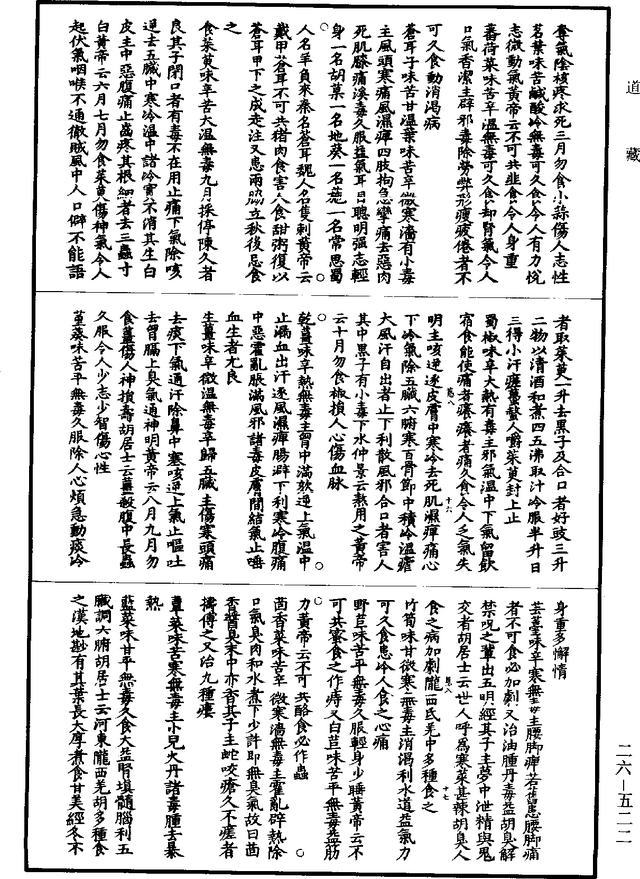 道藏
奪氣陰核疼求死三月勿食小蒜傷人志性
茗葉味苦鹹酸冷無毒可久食令人有力悅
志微動氣黃帝云不可共韭食令人身重
蕃荷菜味苦辛溫無毒可久食却腎氣令人
口氣香潔主辟邪毒除勞弊形瘦疲倦者不
可久食動消渴病
蒼耳子味苦甘溫葉味苦辛微寒濇有小毒
主風頭寒痛風濕痺四肢拘急攣痛去惡肉
死肌膝痛溪毒久服益氣耳目聰明強志輕
身一名胡葈一名地葵一名葹一名常思蜀
人名羊負來秦名蒼耳魏人名隻刺黃帝云
戴甲蒼耳不可共猪肉食害人食甜粥復以
蒼耳甲下之成走注又患兩脇立秋後忌食
之
食茱萸味辛苦大溫無毒九月採停陳久者
良其子閉口者有毒不任用止痛下氣除咳
逆去五臟中寒冷溫中諸冷實不消其生白
皮主中惡腹痛止齒疼其根細者去三蟲寸
白黃帝云六月七月勿食茱萸傷神氣令人
起伏氣咽喉不通徹賊風中人口僻不能語
者取茱萸一升去黑子及合口者好豉三升
二物以清酒和煮四五沸取汁冷服半升日
三得小汗瘥蠆螫人嚼茱萸封上止
蜀椒味辛大熱有毒主邪氣溫中下氣留飲
宿食能使痛者癢癢者痛久食令人乏氣失
明主咳逆逐皮膚中寒冷去死肌濕痺痛心
下冷氣除五臟六腑寒百骨節中積冷溫瘧
大風汗自出者止下利散風邪合口者害人
其中黑子有小毒下水仲景云熬用之黃帝
云十月勿食椒損人心傷血脉
乾薑味辛熱無毒主胷中滿欬逆上氣溫中
止漏血出汗逐風濕痺腸澼下利寒冷腹痛
中惡霍亂脹滿風邪諸毒皮膚間結氣止唾
血生者尤良
生薑味辛微溫無毒辛歸五臟主傷寒頭痛
去痰下氣通汗除鼻中塞咳逆上氣止嘔吐
去胷膈上臭氣通神明黃帝云八月九月勿
食薑傷人神損壽胡居士云薑殺腹中長蟲
久服令人少志少智傷心性
堇葵味苦平無毒久服除人心煩急動痰冷
身重多懈惰
芸薹味辛寒無毒主腰脚痺若舊患腰脚痛
者不可食必加劇又治油腫丹毒益胡臭解
禁呪之輩出五明經其子主夢中泄精與鬼
交者胡居士云世人呼爲寒菜甚辣胡臭人
食之病加劇隴西氐羌中多種食之
竹筍味甘微寒無毒主消渴利水道益氣力
可久食患冷人食之心痛
野苣味苦平無毒久服輕身少睡黃帝云不
可共蜜食之作痔又白苣味苦平無毒益筋
力黃帝云不可共酪食必作蟲
茴香菜味苦辛微寒濇無毒主霍亂辟熱除
口氣臭肉和水煮下少許即無臭氣故曰茴
香醬臭末中亦香其子主蛇咬瘡久不瘥者
擣傅之又治九種瘻
蕈菜味苦寒無毒主小兒火丹諸毒腫去暴
熱
藍菜味甘平無毒久食大益腎填髓腦利五
臟調六腑胡居士云河東隴西羌胡多種食
之漢地尠有其葉長大厚煮食甘美經冬不
二六—五二二